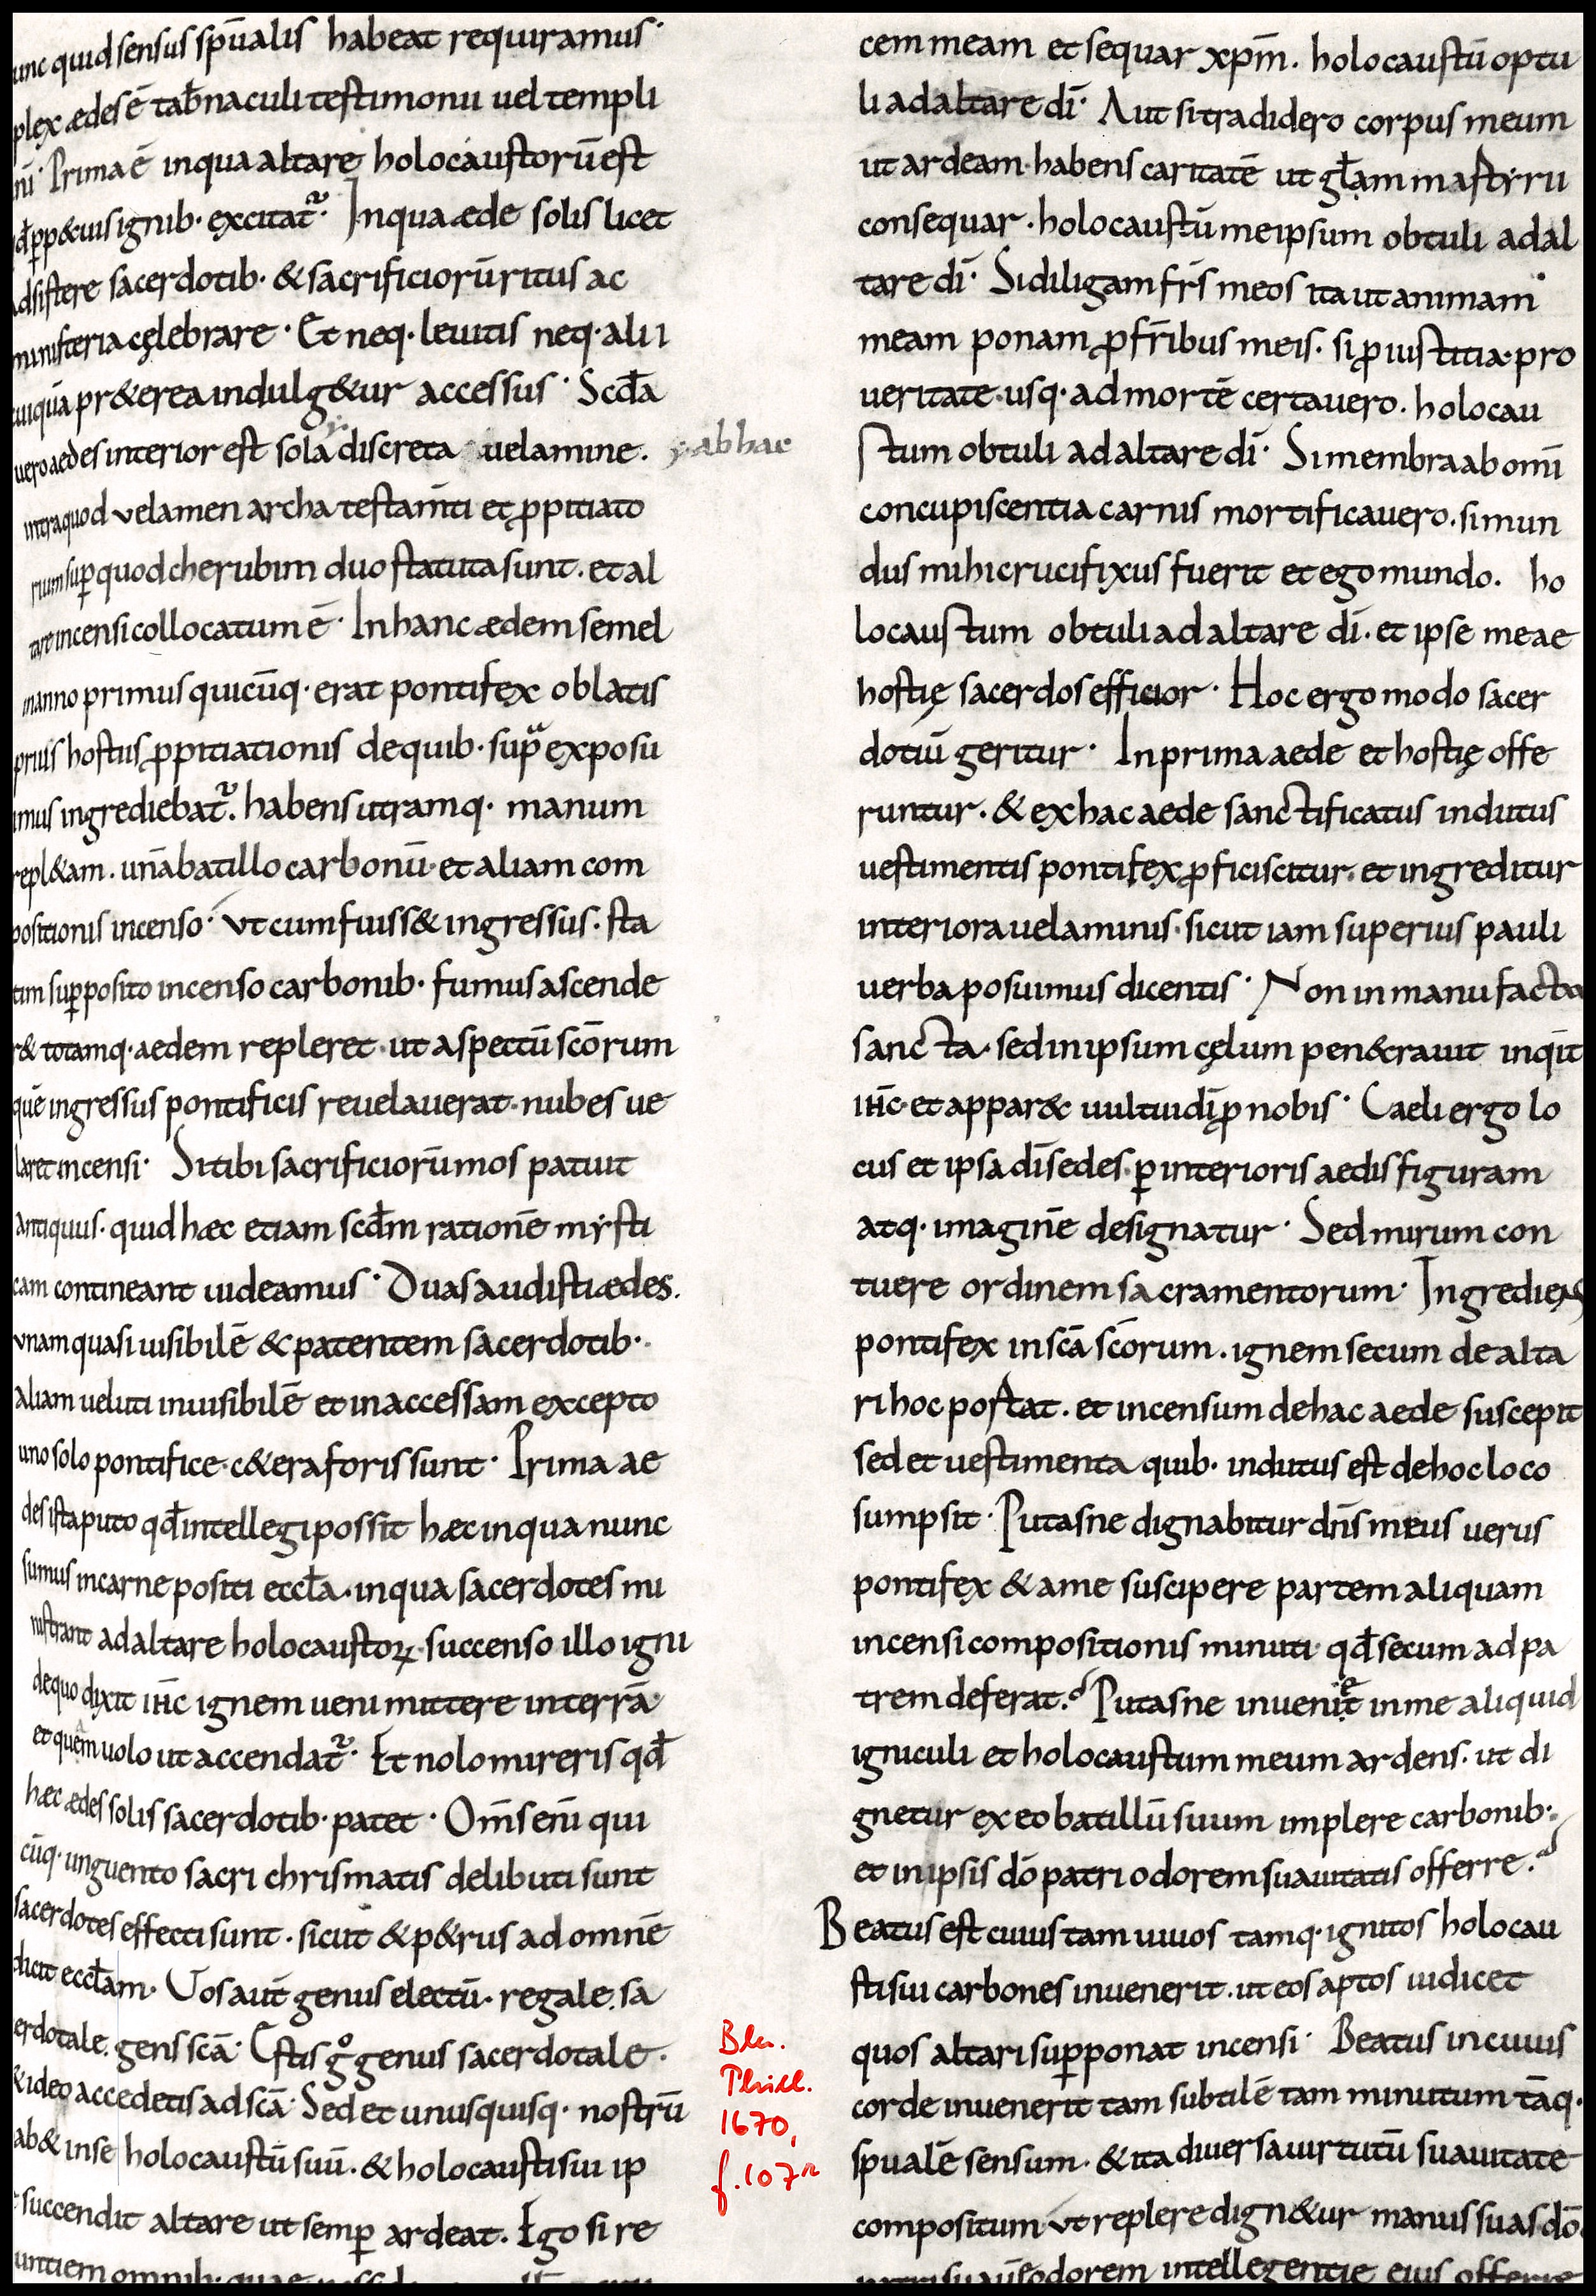 unc quid sensus sp̄ualis habeat requiramus·
plex ædes ē tab̄naculi testimonii uel templi
nī· Prima ē in qua altare holocaustorū est
qđ ꝑp&uis ignib· excitat᷑· In qua æde solis licet
adsistere sacerdotib· & sacrificiorū ritus ac
ministeria cęlebrare· Et neq· leuitis neq· alii
cuiquā pr&erea indulg&ur accessus· Scđa
uero aedes interior est sola discreta uelamine. y· ab hac
intra quod velamen archa testam̄ti et ꝓpitiato
rium suꝑ quod cherubim duo statuta sunt. et al
tare incensi collocatum ē· In hanc ædem semel
in anno primus quicūq· erat pontifex oblatis
prius hostiis ꝓpitiationis de quib· supᷓ exposu
imus ingrediebat᷑. habens utramq· manum
repl&am. unā batillo carbonū· et aliam com
positionis incenso· Vt cum fuiss& ingressus· sta
tim suꝑposito incenso carbonib· fumus ascende
r& totamq· aedem repleret· ut aspectū scōrum
quē ingressus pontificis reuelauerat· nubes ue
laret incensi· Si tibi sacrificiorū mos patuit
antiquus· quid hæc etiam scđm rationē mẏsti
cam contineant uideamus· Duas audisti ædes.
vnam quasi uisibilē & patentem sacerdotib·
aliam ueluti inuisibilē et inaccessam excepto
uno solo pontifice· c&era foris sunt· Prima ae
des ista puto qđ intellegi possit hæc in qua nunc
sumus in carne positi eccła· in qua sacerdotes mi
nistrant ad altare holocaustoꝝ· succenso illo igni
de quo dixit iħc ignem ueni mittere in terrā·
et quem uolo ut accendat᷑· Et nolo mireris qđ
hæc ædes solis sacerdotib· patet· Om̄s enī qui
cūq· unguento sacri chrismatis delibuti sunt
sacerdotes effecti sunt· sicut & p&rus ad omnē
dicit eccłam· Vos aut̄ genus electū· regale sa
erdotale· gens scā· Estis gͦ genus sacerdotale·
& ideo accedetis ad scā· Sed et unusquisq· nostrū
ab& in se holocaustū suū· & holocausti sui ip
e succendit altare ut semꝑ ardeat. Ego si re
untiem omnib· quae possideo
cem meam et sequar xp̄m. holocaustū optu
li ad altare dī· Aut si tradidero corpus meum
ut ardeam· habens caritatē ut głam martẏrii
consequar· holocaustū meipsum obtuli ad al
tare dī· Si diligam fr̄s meos ita ut animam
meam ponam ꝓ fr̄ibus meis· si ꝓ iustitia· pro
ueritate· usq· ad mortē certauero· holocau
stum obtuli ad altare dī· Si membra ab omī
concupiscentia carnis mortificauero· si mun
dus mihi crucifixus fuerit et ego mundo. ho
locaustum obtuli ad altare dī· et ipse meae
hostię sacerdos efficior· Hoc ergo modo sacer
dotiū geritur· In prima aede et hostię offe
runtur· & ex hac aede sanctificatus indutus
uestimentis pontifex ꝓficiscitur· et ingreditur
interiora uelaminis· sicut iam superius pauli
uerba posuimus dicentis· Non in manu facta
sancta· sed in ipsum cęlum pen&rauit inqit
iħc· et appar& uultui dī ꝓ nobis· Caeli ergo lo
cus et ipsa dī sedes· ꝑ interioris aedis figuram
atq· imaginē designatur· Sed mirum con
tuere ordinem sacramentorum· Ingrediens
pontifex in scā scōrum· ignem secum de alta
ri hoc portat· et incensum de hac aede suscepit
sed et uestimenta quib· indutus est de hoc loco
sumpsit· Putasne dignabitur dn̄s meus uerus
pontifex & a me suscipere partem aliquam
incensi compositionis minuti· qđ secum ad pa
trem deferat? Putasne inueniet in me aliquid
igniculi et holocaustum meum ardens· ut di
gnetur ex eo batillū suum implere carbonib·
et in ipsis dō patri odorem suauitatis offerre?
Beatus est cuius tam uiuos tamq· ignitos holocau
sti sui carbones inuenerit· ut eos aptos iudicet
quos altari suꝑponat incensi· Beatus in cuius
corde inuenerit tam subtilē tam minutum tāq·
sp̄ualē sensum· & ita diuersa uirtutū suauitate
compositum Vt replere dign&ur manus suas· dō
patri suauē odorem intellegentię eius offerre
Bln.
Phill.
1670,
f. 107r